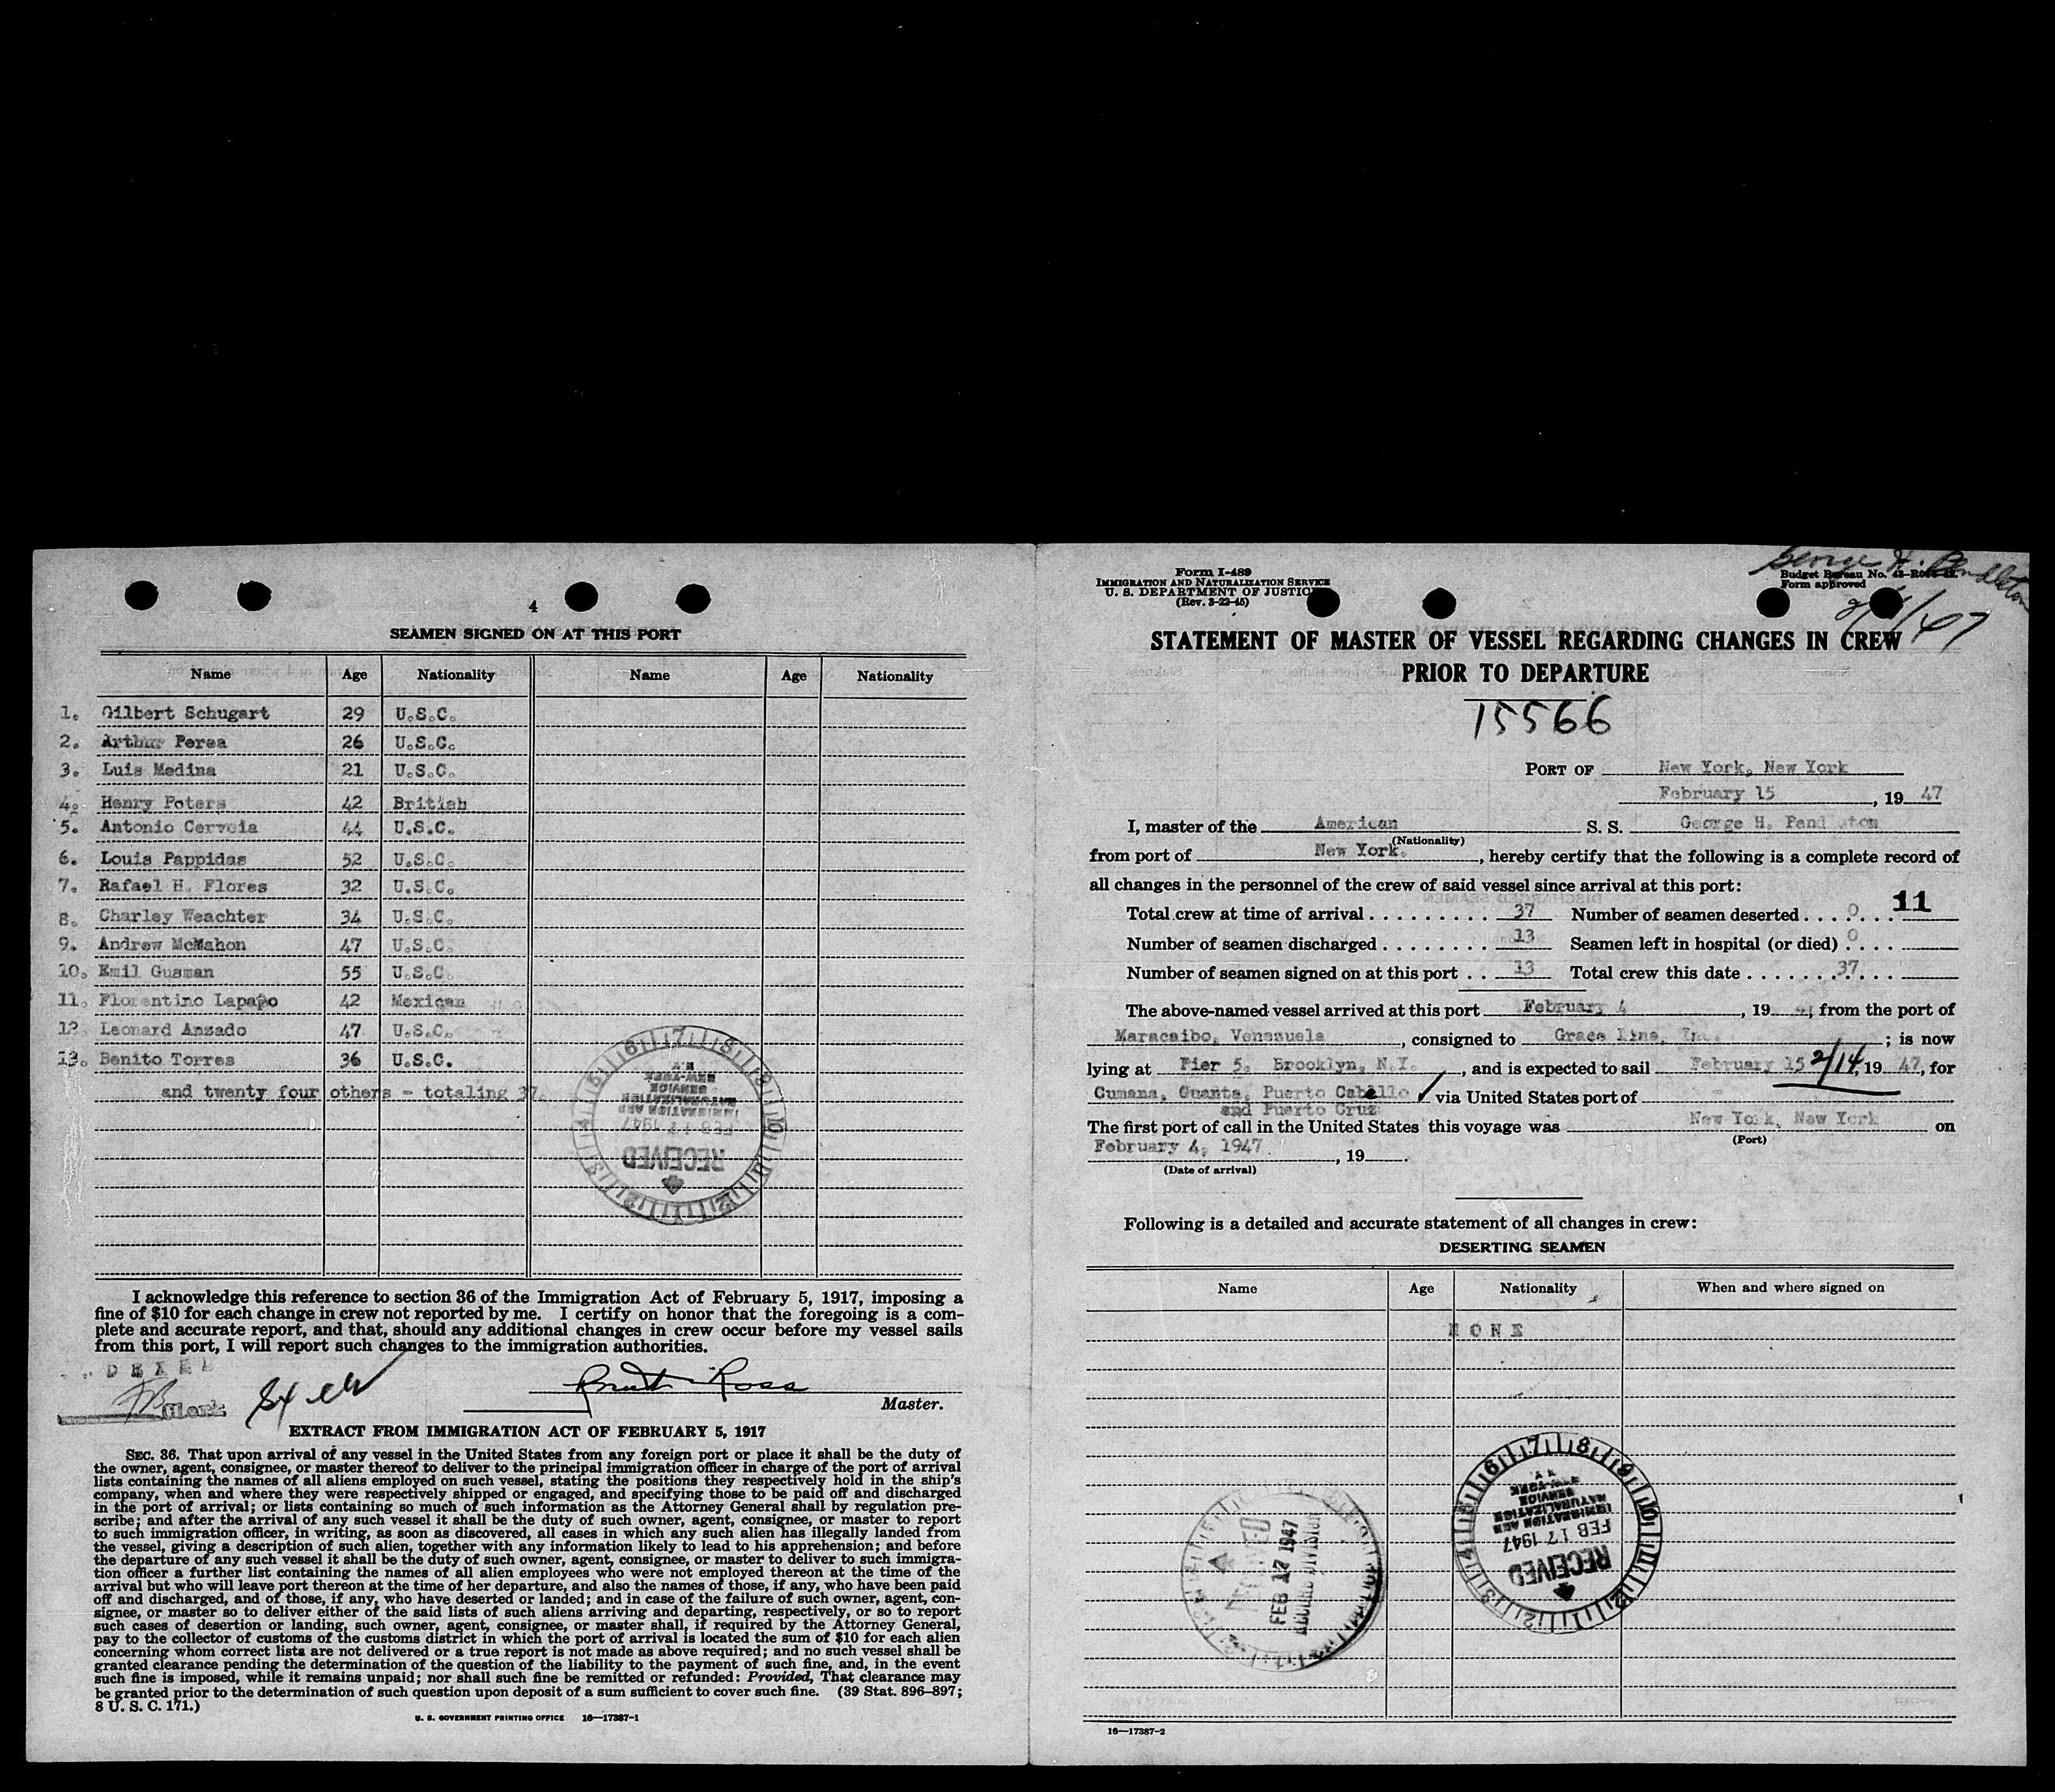 4
SEAMEN SIGNED ON AT THIS PORT
Name Age Nationality Name Age Nationality
1. Gilbert Schugart 29 U.S.C.
2. Arthur Perea 26 U.S.C.
3. Luis Medina 21 U.S.C.
4. Henry Peters 42 British
5. Antonio Cerveia 44 U.S.C.
6. Louis Pappidas 52 U.S.C.
7. Rafael H. Flores 32 U.S.C.
8. Charley Weachter 34 U.S.C.
9. Andrew McMahon 47 U.S.C.
10. Emil Gusman 55 U.S.C.
11. Florentino 42 Mexican
12. Leonard Anzado 47 U.S.C.
13. Benito Torres 36 U.S.C.
and twenty four others - totaling 37.
N.Y.
NEW-YORK
SERVICE
NATURALIZATION
IMMIGRATION AND
FEB 17 1947
RECEIVED
I acknowledge this reference to section 36 of the Immigration Act of February 5, 1917, imposing a
fine of $10 for each change in crew not reported by me. I certify on honor that the foregoing is a com-
plete and accurate report, and that, should any additional changes in crew occur before my vessel sails
from this port, I will report such changes to the immigration authorities.
Clerk
Ross
Master.
EXTRACT FROM IMMIGRATION ACT OF FEBRUARY 5, 1917
SEC. 36. That upon arrival of any vessel in the United States from any foreign port or place it shall be the duty of
the owner, agent, consignee, or master thereof to deliver to the principal immigration officer in charge of the port of arrival
lists containing the names of all aliens employed on such vessel, stating the positions they respectively hold in the ship's
company, when and where they were respectively shipped or engaged, and specifying those to be paid off and discharged
in the port of arrival; or lists containing so much of such information as the Attorney General shall by regulation pre-
scribe; and after the arrival of any such vessel it shall be the duty of such owner, agent, consignee, or master to report
to such immigration officer, in writing, as soon as discovered, all cases in which any such alien has illegally landed from
the vessel, giving a description of such alien, together with any information likely to lead to his apprehension; and before
the departure of any such vessel it shall be the duty of such owner, agent, consignee, or master to deliver to such immigra-
tion officer a further list containing the names of all alien employees who were not employed thereon at the time of the
arrival but who will leave port thereon at the time of her departure, and also the names of those, if any, who have been paid
off and discharged, and of those, if any, who have deserted or landed; and in case of the failure of such owner, agent, con-
signee, or master so to deliver either of the said lists of such aliens arriving and departing, respectively, or so to report
such cases of desertion or landing, such owner, agent, consignee, or master shall, if required by the Attorney General,
pay to the collector of customs of the customs district in which the port of arrival is located the sum of $10 for each alien
concerning whom correct lists are not delivered or a true report is not made as above required; and no such vessel shall be
granted clearance pending the determination of the question of the liability to the payment of such fine, and, in the event
such fine is imposed, while it remains unpaid; nor shall such fine be remitted or refunded: Provided, That clearance may
be granted prior to the determination of such question upon deposit of a sum sufficient to cover such fine. (39 Stat. 896–897;
8 U. S. C. 171.)
U. S. GOVERNMENT PRINTING OFFICE 16—17387-1
Form I-489
IMMIGRATION AND NATURALIZATION SERVICE
U. S. DEPARTMENT OF JUSTICE
(Rev. 3-22-45)
George H. Pendleton
Budget Bureau No.
Form approved
STATEMENT OF MASTER OF VESSEL REGARDING CHANGES IN CREW
PRIOR TO DEPARTURE
15566
PORT OF New York, New York
February 15, 1947
I, master of the American S. S. George H. Pendleton
(Nationality)
from port of New York, hereby certify that the following is a complete record of
all changes in the personnel of the crew of said vessel since arrival at this port:
Total crew at time of arrival . . . . . . . . . 37 Number of seamen deserted . . . 0 . . 11
Number of seamen discharged . . . . . . . . 13 Seamen left in hospital (or died) 0 . . .
Number of seamen signed on at this port . . 13 Total crew this date . . . . . . 37 . . .
The above-named vessel arrived at this port February 4, 19 , from the port of
Maracaibo, Venezuela, consigned to Grace Line, Inc. ; is now
lying at Pier 5, Brooklyn, N.Y., and is expected to sail February 15 2/14, 1947, for
Cumana, Guanta, Puerto Cabello ✓ via United States port of -
and Puerto Cruz
The first port of call in the United States this voyage was New York, New York on
(Port)
February 4, 1947, 19 .
(Date of arrival)
Following is a detailed and accurate statement of all changes in crew:
DESERTING SEAMEN
Name Age Nationality When and where signed on
NONE
FEB 17 1947
RECORD DIVISION
N.Y.
NEW-YORK
SERVICE
NATURALIZATION
IMMIGRATION AND
FEB 17 1947
RECEIVED
16—17387-2